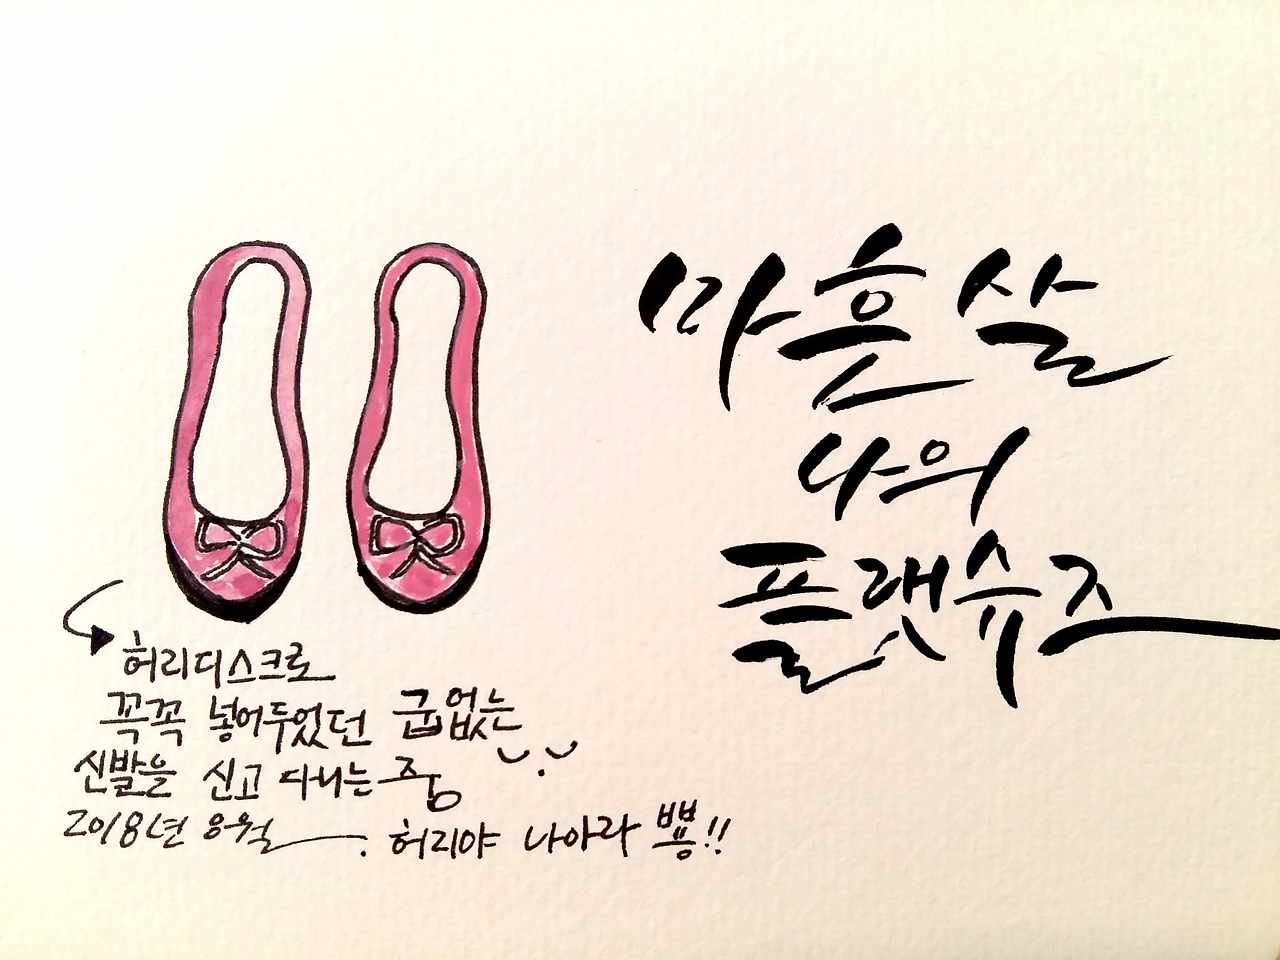 마흔 살
나의
플랫슈즈
허리디스크로
꼭꼭 넣어두었던 굽없는
신발을 신고 다니는 중
2018년 8월. 허리야 나아라 뿅!!